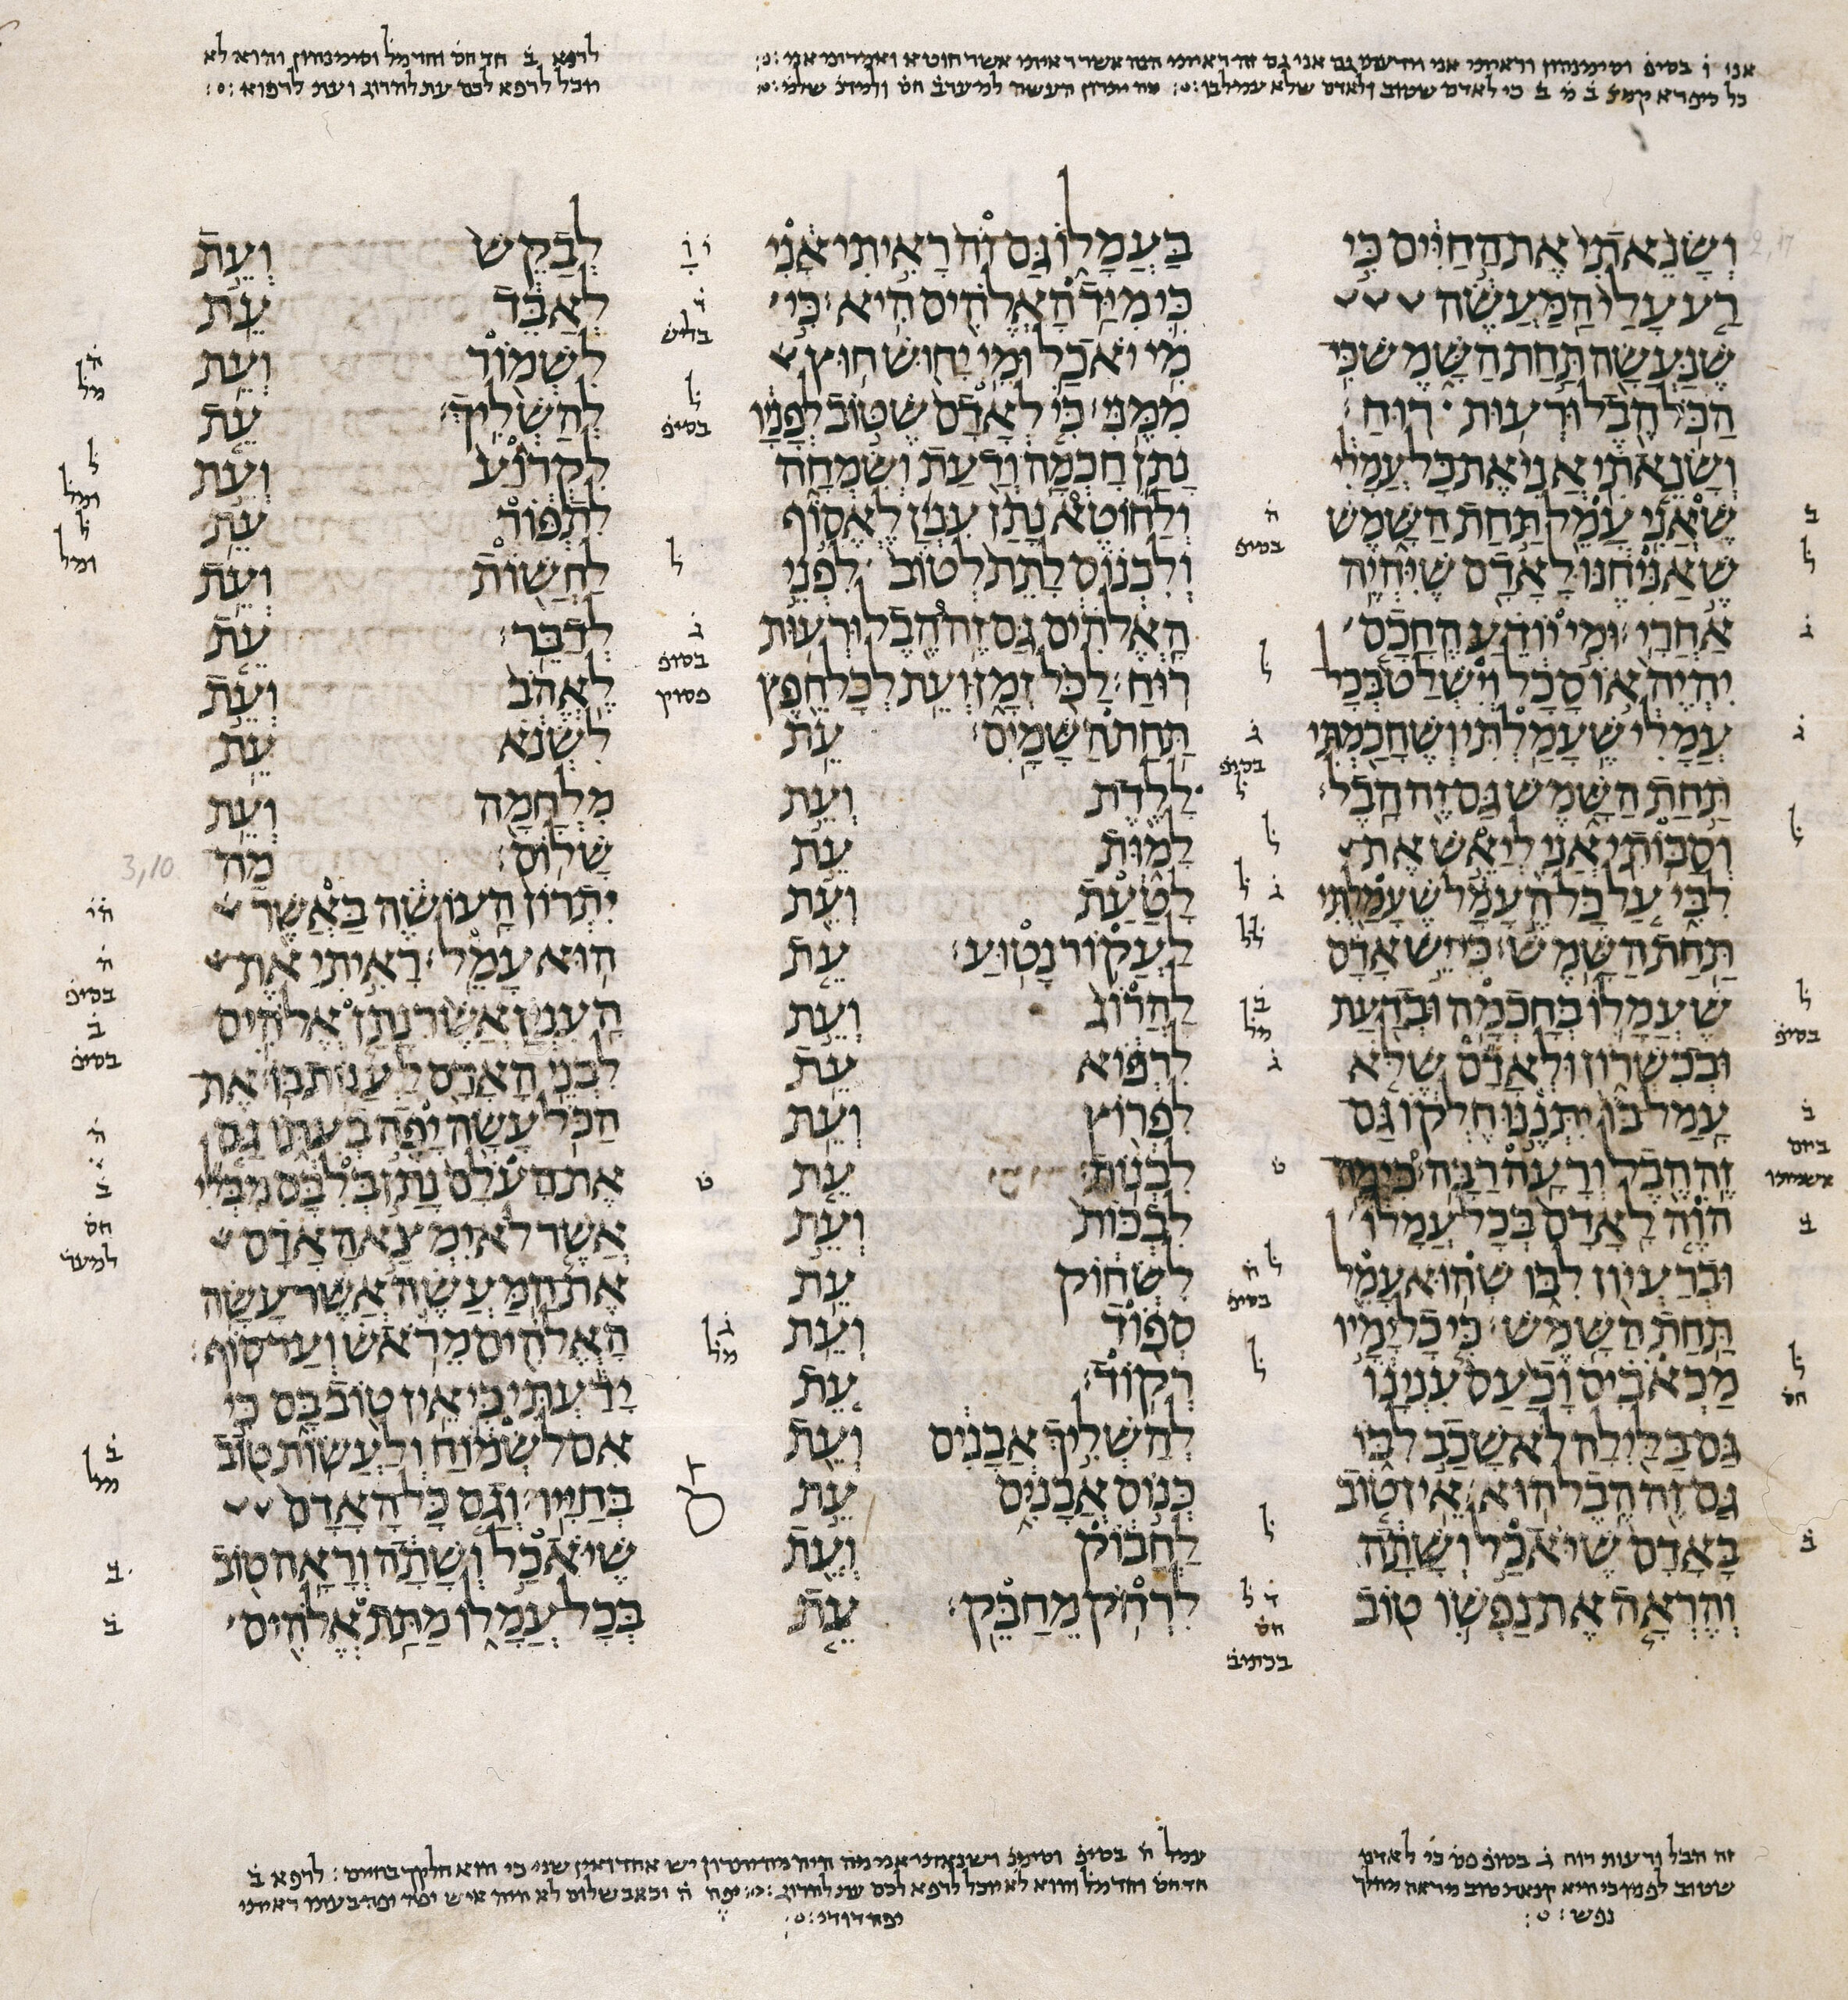 אני ו̇ בסיפ וסימנהון וראיתי אני וידעתי גם אני גם זה ראיתי הנה אשר ראיתי אשר חוטא ואמרתי אני
לרפא ב̇ חד חס וחד מל וסימנהון והוא לא
יוכל לרפא לכם עת להרוג ועת לרפוא
וְשָׂנֵאתִי אֶת הַחַיִּים כִּי
רַע עָלַי הַמַּעֲשֶׂה
שֶׁנַּעֲשָׂה תַּחַת הַשָּׁמֶשׁ כִּי
הַכֹּל הֶבֶל וּרְעוּת רוּחַ׃
וְשָׂנֵאתִי אֲנִי אֶת כָּל עֲמָלִי
שֶׁאֲנִי עָמֵל תַּחַת הַשָּׁמֶשׁ
שֶׁאַנִּיחֶנּוּ לָאָדָם שֶׁיִּהְיֶה
אַחֲרָי׃ וּמִי יוֹדֵעַ הֶחָכָם
יִהְיֶה אוֹ סָכָל וְיִשְׁלַט בְּכָל
עֲמָלִי שֶׁעָמַלְתִּי וְשֶׁחָכַמְתִּי
תַּחַת הַשָּׁמֶשׁ גַּם זֶה הָבֶל׃
וְסַבּוֹתִי אֲנִי לְיַאֵשׁ אֶת
לִבִּי עַל כָּל הֶעָמָל שֶׁעָמַלְתִּי
תַּחַת הַשָּׁמֶשׁ׃ כִּי יֵשׁ אָדָם
שֶׁעֲמָלוֹ בְּחָכְמָה וּבְדַעַת
וּבְכִשְׁרוֹן וּלְאָדָם שֶׁלֹּא
עָמַל בּוֹ יִתְּנֶנּוּ חֶלְקוֹ גַּם
זֶה הֶבֶל וְרָעָה רַבָּה׃ כִּי מֶה
הוֶֹה לָאָדָם בְּכָל עֲמָלוֹ
וּבְרַעְיוֹן לִבּוֹ שֶׁהוּא עָמֵל
תַּחַת הַשָּׁמֶשׁ׃ כִּי כָל יָמָיו
מַכְאֹבִים וָכַעַס עִנְיָנוֹ
גַּם בַּלַּיְלָה לֹא שָׁכַב לִבּוֹ
גַּם זֶה הֶבֶל הוּא׃ אֵין טוֹב
בָּאָדָם שֶׁיֹּאכַל וְשָׁתָה
וְהֶרְאָה אֶת נַפְשׁוֹ טוֹב
בַּעֲמָלוֹ גַּם זֹה רָאִיתִי אָנִי
כִּי מִיַּד הָאֱלֹהִים הִיא׃ כִּי
מִי יֹאכַל וּמִי יָחוּשׁ חוּץ
מִמֶּנִּי׃ כִּי לְאָדָם שֶׁטּוֹב לְפָנָיו
נָתַן חָכְמָה וְדַעַת וְשִׂמְחָה
וְלַחוֹטֶא נָתַן עִנְיָן לֶאֱסוֹף
וְלִכְנוֹס לָתֵת לְטוֹב לִפְנֵי
הָאֱלֹהִים גַּם זֶה הֶבֶל וּרְעוּת
רוּחַ׃ לַכֹּל זְמָן וְעֵת לְכָל חֵפֶץ
תַּחַת הַשָּׁמָיִם׃ עֵת
לָלֶדֶת וְעֵת
לָמוּת עֵת
לָטַעַת וְעֵת
לַעֲקוֹר נָטוּעַ׃ עֵת
לַהֲרוֹג וְעֵת
לִרְפּוֹא עֵת
לִפְרוֹץ וְעֵת
לִבְנוֹת׃ עֵת
לִבְכּוֹת וְעֵת
לִשְׂחוֹק עֵת
סְפוֹד וְעֵת
רְקוֹד׃ עֵת
לְהַשְׁלִיךְ אֲבָנִים וְעֵת
כְּנוֹס אֲבָנִים עֵת
לַחֲבוֹק וְעֵת
לִרְחֹק מֵחַבֵּק׃ עֵת
לְבַקֵּשׁ וְעֵת
לְאַבֵּד עֵת
לִשְׁמוֹר וְעֵת
לְהַשְׁלִיךְ׃ עֵת
לִקְרוֹעַ וְעֵת
לִתְפּוֹר עֵת
לַחֲשׁוֹת וְעֵת
לְדַבֵּר׃ עֵת
לֶאֱהֹב וְעֵת
לִשְׂנֹא עֵת
מִלְחָמָה וְעֵת
שָׁלוֹם׃ מַה
יִּתְרוֹן הָעוֹשֶׂה בַּאֲשֶׁר
הוּא עָמֵל׃ רָאִיתִי אֶת
הָעִנְיָן אֲשֶׁר נָתַן אֱלֹהִים
לִבְנֵי הָאָדָם לַעֲנוֹת בּוֹ׃ אֶת
הַכֹּל עָשָׂה יָפֶה בְעִתּוֹ גַּם
אֶת הָעֹלָם נָתַן בְּלִבָּם מִבְּלִי
אֲשֶׁר לֹא יִמְצָא הָאָדָם
אֶת הַמַּעֲשֶׂה אֲשֶׁר עָשָׂה
הָאֱלֹהִים מֵרֹאשׁ וְעַד סוֹף׃
יָדַעְתִּי כִּי אֵין טוֹב בָּם כִּי
אִם לִשְׂמוֹחַ וְלַעֲשׂוֹת טוֹב
בְּחַיָּיו׃ וְגַם כָּל הָאָדָם
שֶׁיֹּאכַל וְשָׁתָה וְרָאָה טוֹב
בְּכָל עֲמָלוֹ מַתַּת אֱלֹהִים
3,10
זה הבל ורעות רוח ג̇ בסופ פס כי לאדם
שטוב לפניו כי היא קנאת טוב מראה מהלך
נפש
יפה דודי